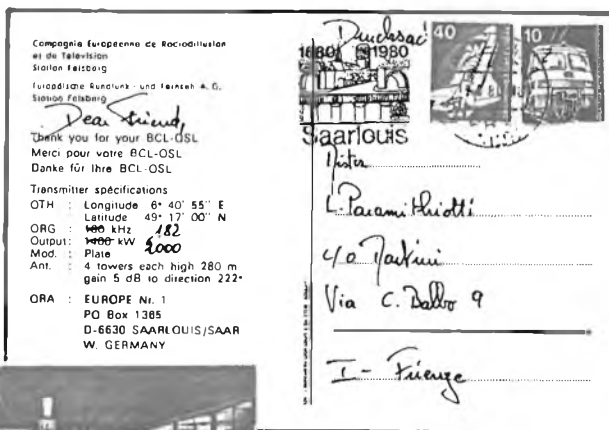 Compagnie Européenne de Radiodiffusion
et de Télévision
Station Felsberg
Europäische Rundfunk - und Fernseh A. G.
Station Felsberg
Dear Friend,
Thank you for your BCL-QSL
Merci pour votre BCL-QSL
Danke für Ihre BCL-QSL
Transmitter spécifications
QTH : Longitude 6° 40' 55" E
Latitude 49° 17' 00" N
QRG : 180 kHz 182
Output: 1400 kW 2000
Mod. : Plate
Ant. : 4 towers each high 280 m
gain 5 dB to direction 222°
QRA : EUROPE Nr. 1
PO Box 1365
D-6630 SAARLOUIS/SAAR
W. GERMANY
1680 1980
Saarlouis
40
10
Mister
L. Paramithiotti
c/o Martini
Via C. Balbo 9
I - Firenze